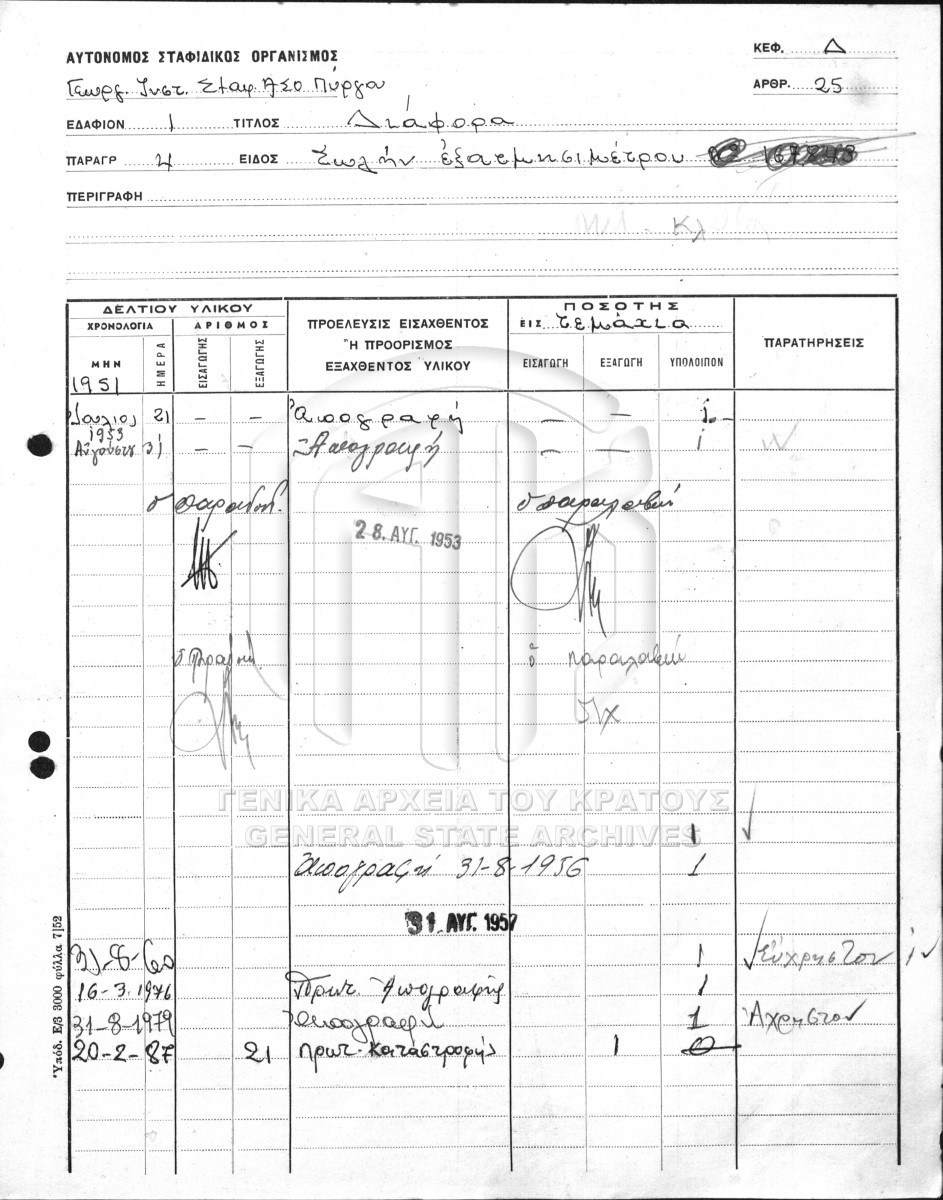 ΑΥΤΟΝΟΜΟΣ ΣΤΑΦΙΔΙΚΟΣ ΟΡΓΑΝΙΣΜΟΣ
ΚΕΦ. Δ
Γεωργ. Ινστ. Σταφ. ΑΣΟ Πύργου
ΑΡΘΡ. 25
ΕΔΑΦΙΟΝ 1 ΤΙΤΛΟΣ Διάφορα
ΠΑΡΑΓΡ 4 ΕΙΔΟΣ Σωλήν ἐξατμησιμέτρου
ΠΕΡΙΓΡΑΦΗ
ΔΕΛΤΙΟΥ ΥΛΙΚΟΥ
ΧΡΟΝΟΛΟΓΙΑ ΑΡΙΘΜΟΣ
ΜΗΝ ΗΜΕΡΑ ΕΙΣΑΓΩΓΗΣ ΕΞΑΓΩΓΗΣ
1951
ΠΡΟΕΛΕΥΣΙΣ ΕΙΣΑΧΘΕΝΤΟΣ
Ἢ ΠΡΟΟΡΙΣΜΟΣ
ΕΞΑΧΘΕΝΤΟΣ ΥΛΙΚΟΥ
ΠΟΣΟΤΗΣ
ΕΙΣ τεμάχια
ΕΙΣΑΓΩΓΗ ΕΞΑΓΩΓΗ ΥΠΟΛΟΙΠΟΝ
ΠΑΡΑΤΗΡΗΣΕΙΣ
Ἰούλιος 21 – – Ἀπογραφή – – 1
1953
Αὐγούστου 31 – – Ἀπογραφή – – 1
ὁ παραδούς ὁ παραλαβών
28. ΑΥΓ. 1953
ὁ παραδούς ὁ παραλαβών
ΓΕΝΙΚΑ ΑΡΧΕΙΑ ΤΟΥ ΚΡΑΤΟΥΣ
GENERAL STATE ARCHIVES
1
Ἀπογραφή 31-8-1956 1
31 ΑΥΓ. 1957
31-8-60 1 Εὔχρηστον 1
16-3-1976 Πρωτ. Ἀπογραφῆς 1
31-8-1979 Ἀπογραφή 1 Ἄχρηστον
20-2-87 21 Πρωτ. Καταστροφῆς 1 0
Ὑπόδ. Ε/3 3000 φύλλα 7/52